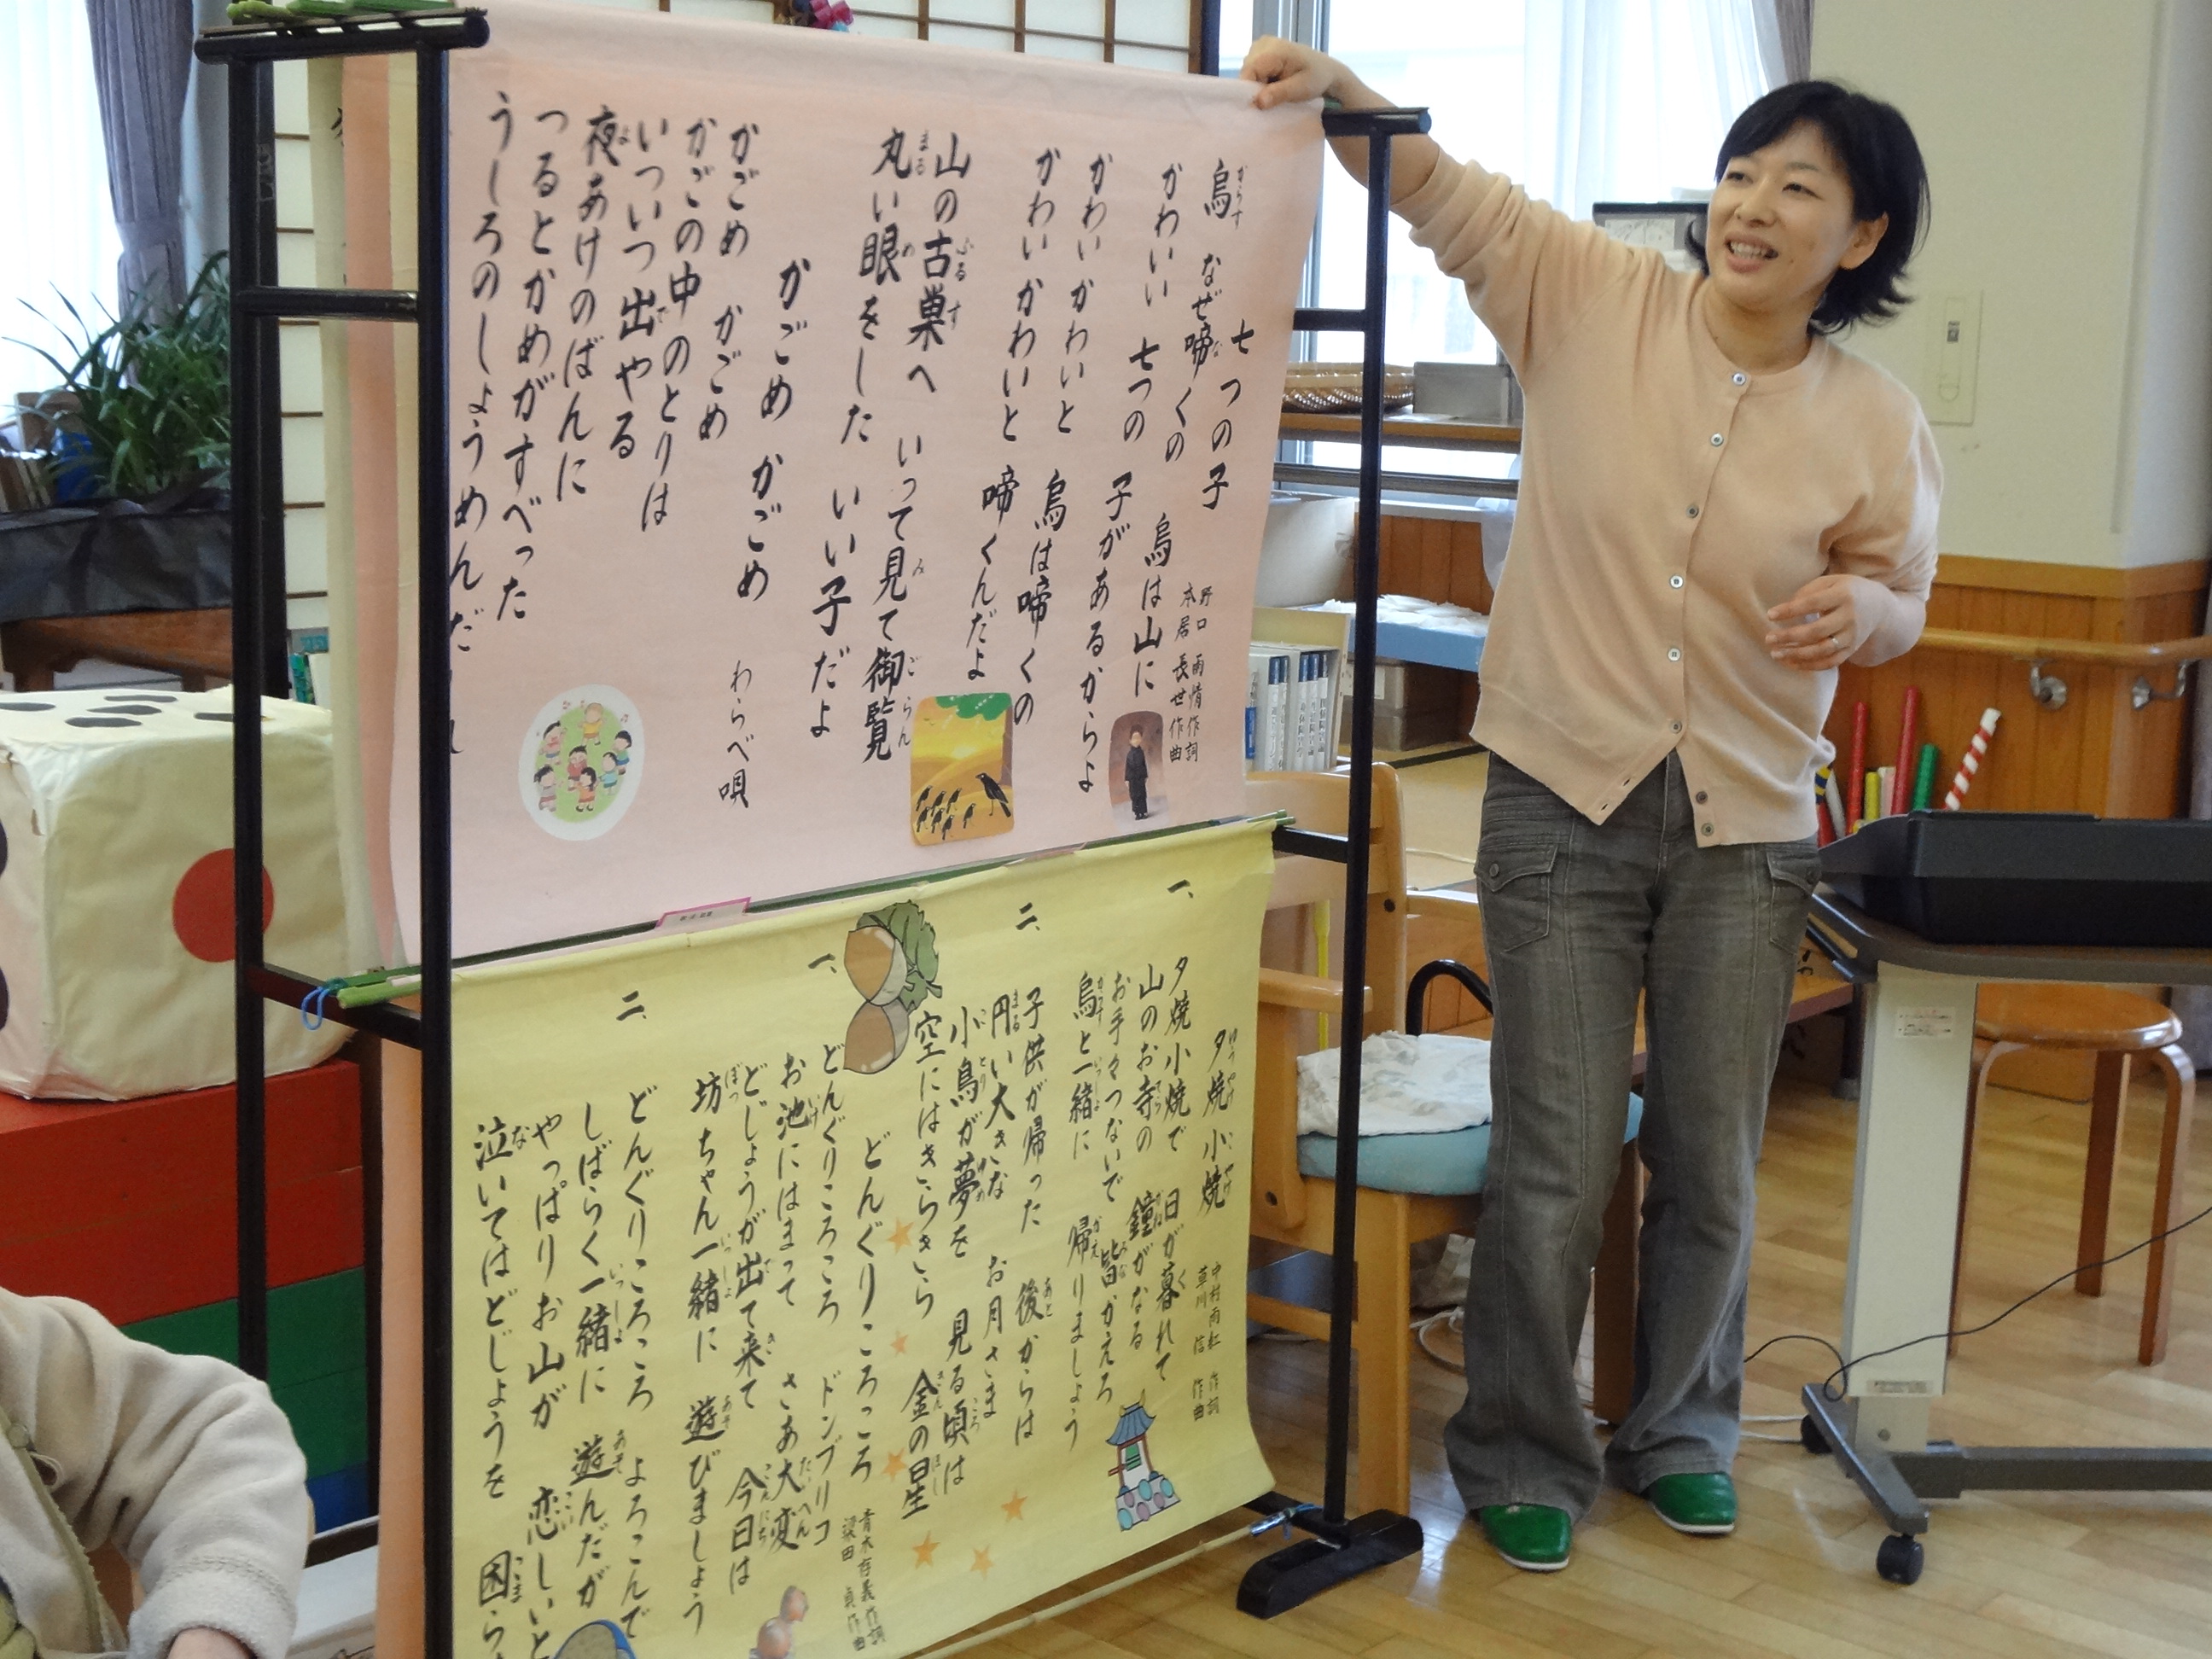 七つの子
野口 雨情作詞
本居 長世作曲
烏 なぜ啼くの 烏は山に
かわいい 七つの 子があるからよ
かわい かわいと 烏は啼くの
かわい かわいと 啼くんだよ
山の古巣へ いって見て御覧
丸い眼をした いい子だよ
かごめ かごめ わらべ唄
かごめ かごめ
かごの中のとりは
いついつ出やる
夜あけのばんに
つるとかめがすべった
うしろのしょうめんだ
夕焼小焼
中村雨紅 作詞
草川 信 作曲
一、
夕焼小焼で 日が暮れて
山のお寺の 鐘がなる
お手々つないで 皆かえろ
烏と一緒に 帰りましょう
二、
子供が帰った 後からは
円い大きな お月さま
小鳥が夢を 見る頃は
空にはきらきら 金の星
どんぐりころころ
青木存義作詞
梁田 貞作曲
一、
どんぐりころころ ドンブリコ
お池にはまって さあ大変
どじょうが出て来て 今日は
坊ちゃん一緒に 遊びましょう
二、
どんぐりころころ よろこんで
しばらく一緒に 遊んだが
やっぱりお山が 恋しいと
泣いてはどじょうを 困ら